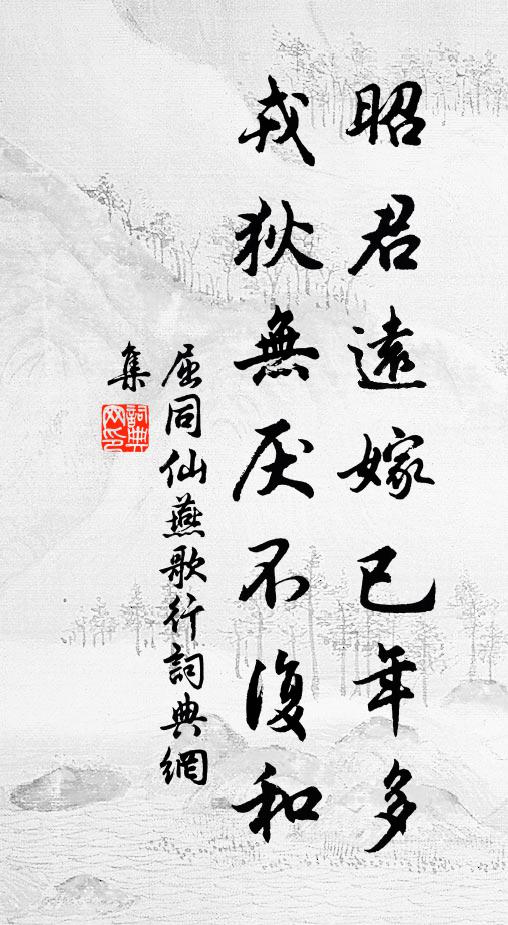 昭君遠嫁已年多
戎狄無厌不復和
屈同仙燕歌行詞典網
集
詞典
网印